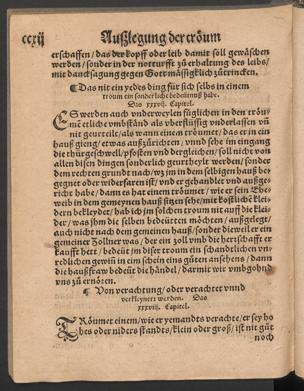 ccxij Außlegung der tröum
erschaffen / das der kopff oder leib damit soll gewäschen
werden / sonder in der notturfft zů erhaltung des leibs /
mit dancksagung gegen Gott mässigklich zůtrincken.
¶ Das nit ein yedes ding für sich selbs in einem
troum ein sonderliche bedeütnuß habe.
Das xxxvij. Capitel.
ES werden auch vnderweylen füglichen in den tröu-
men etliche vmbständ als überflüssig vnderlassen vñ
nit geurteilt / als wann einem tröumet / das er in ein
hauß gieng / etwas außzůrichten / vnnd sehe im eingang
die thürgeschwell / pfosten vnd dergleichen / soll nicht von
allen disen dingen sonderlich geurtheylt werden / sonder
dem rechten grund nach / wz jm in dem selbigen hauß be-
gegnet oder widerfaren ist / vnd er gehandlet vnd außge-
richt habe / dann es hat einem trömet / wie er sein Ehe-
weib in dem gemeynen hauß sitzen sehe / mit köstliche klei-
dern bekleydet / hab ich jm solchen troum nit auff die klei-
der / was jhm die selben bedeütten möchten / außgelegt /
auch nicht nach dem gemeinen hauß / sonder dieweil er ein
gemeiner Zollner was / der ein zoll vmb die herrschafft er
kaufft hett / bedeüt jm diser troum ein schandtlichen vn-
redlichen gewiñ in ein schein eins gůten ansehens / dann
die haußfraw bedeüt die händel / darmit wir vmbgohnd
vns zů ernören.
¶ Von verachtung / oder verachtet vnnd
verkleynert werden. Das
xxxviij. Capitel.
TRöumet einem / wie er yemandts verachte / er sey ho
hes oder niders stands / klein oder groß / ist nit gůt
noch